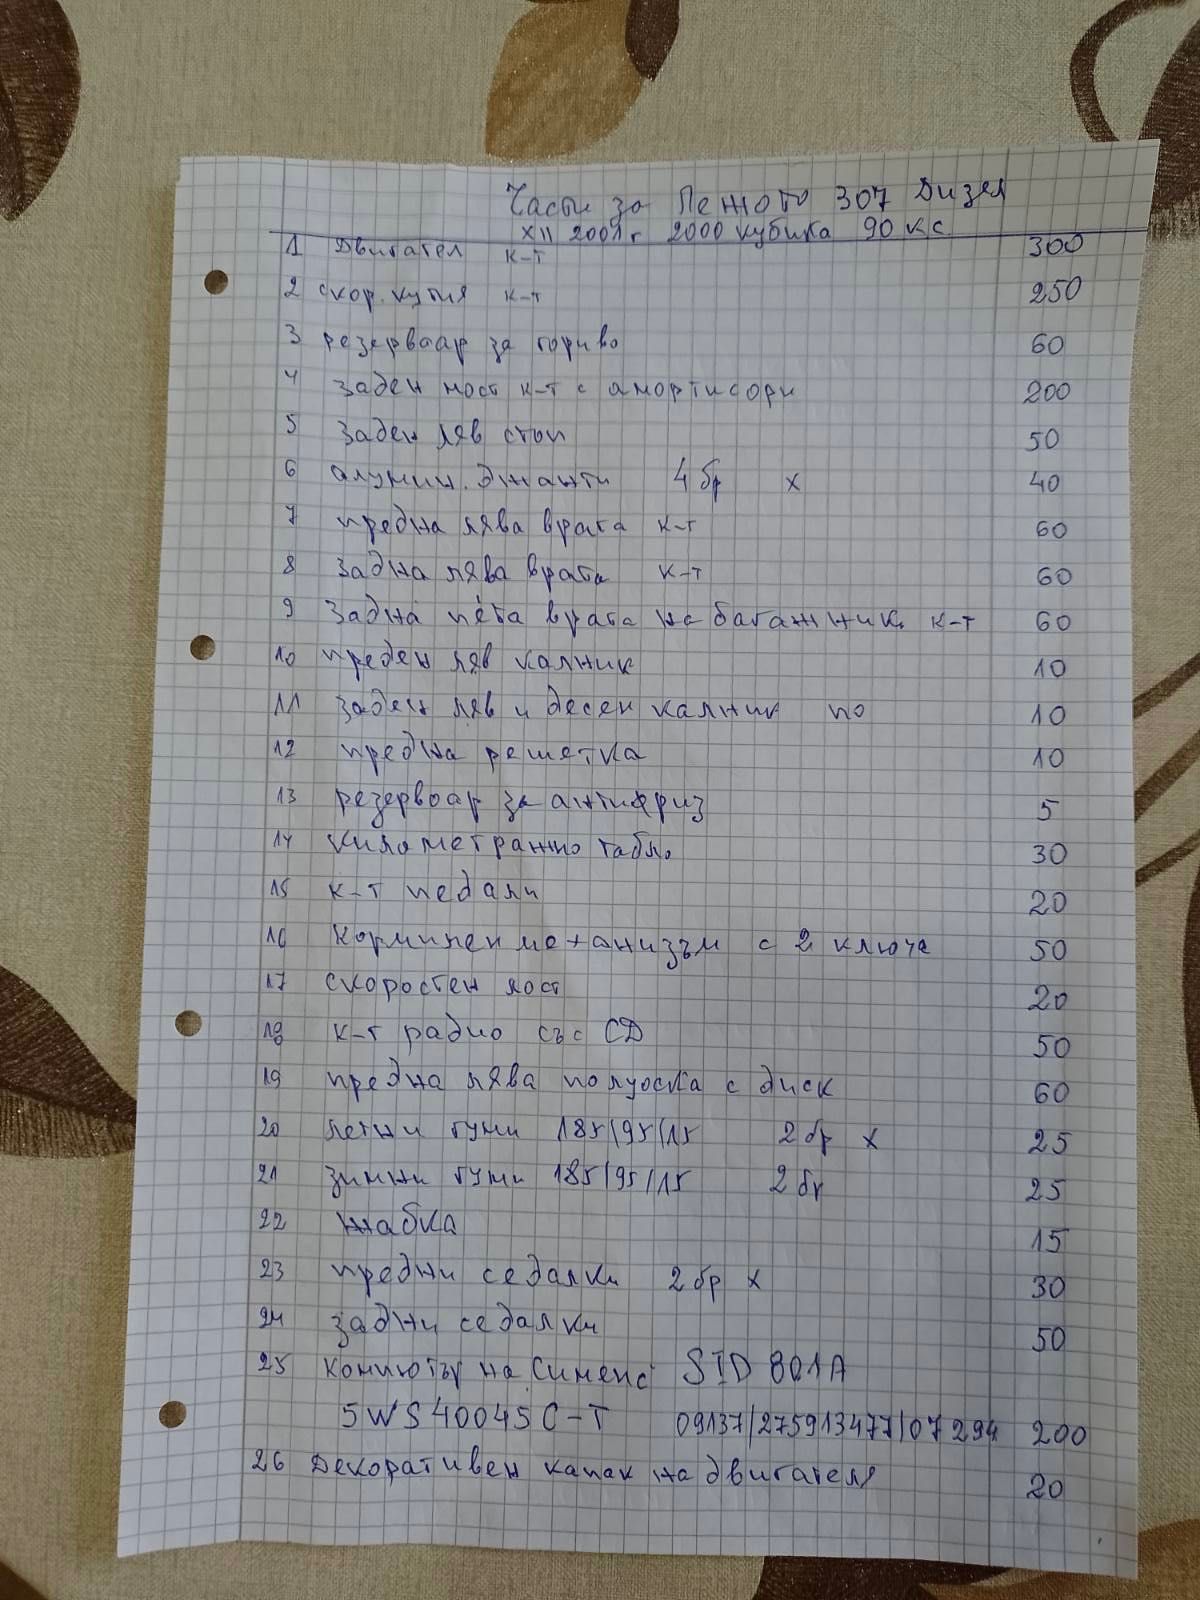 Части за Пежото 307 Дизел
XII 2001г 2000 кубика 90 кс
1 Двигател к-т 300
2 скор. кутия к-т 250
3 резервоар за гориво 60
4 заден мост к-т с амортисори 200
5 Заден ляв стоп 50
6 алумин. джанти 4 бр х 40
7 предна лява врата к-т 60
8 Задна лява врата к-т 60
9 Задна пета врата на багажник к-т 60
10 преден ляв калник 10
11 заден ляв и десен калник по 10
12 предна решетка 10
13 резервоар за антифриз 5
14 километражно табло 30
15 к-т педали 20
16 Кормилен механизъм с 2 ключа 50
17 скоростен лост 20
18 к-т радио със СД 50
19 предна лява полуоска с диск 60
20 летни гуми 185/95/15 2 бр х 25
21 зимни гуми 185/95/15 2 бр 25
22 жабка 15
23 предни седалки 2 бр х 30
24 задни седалки 50
25 Компютър на Сименс SID 801A
5WS40045C-T 09137/275913477/07294 200
26 Декоративен капак на двигателя 20